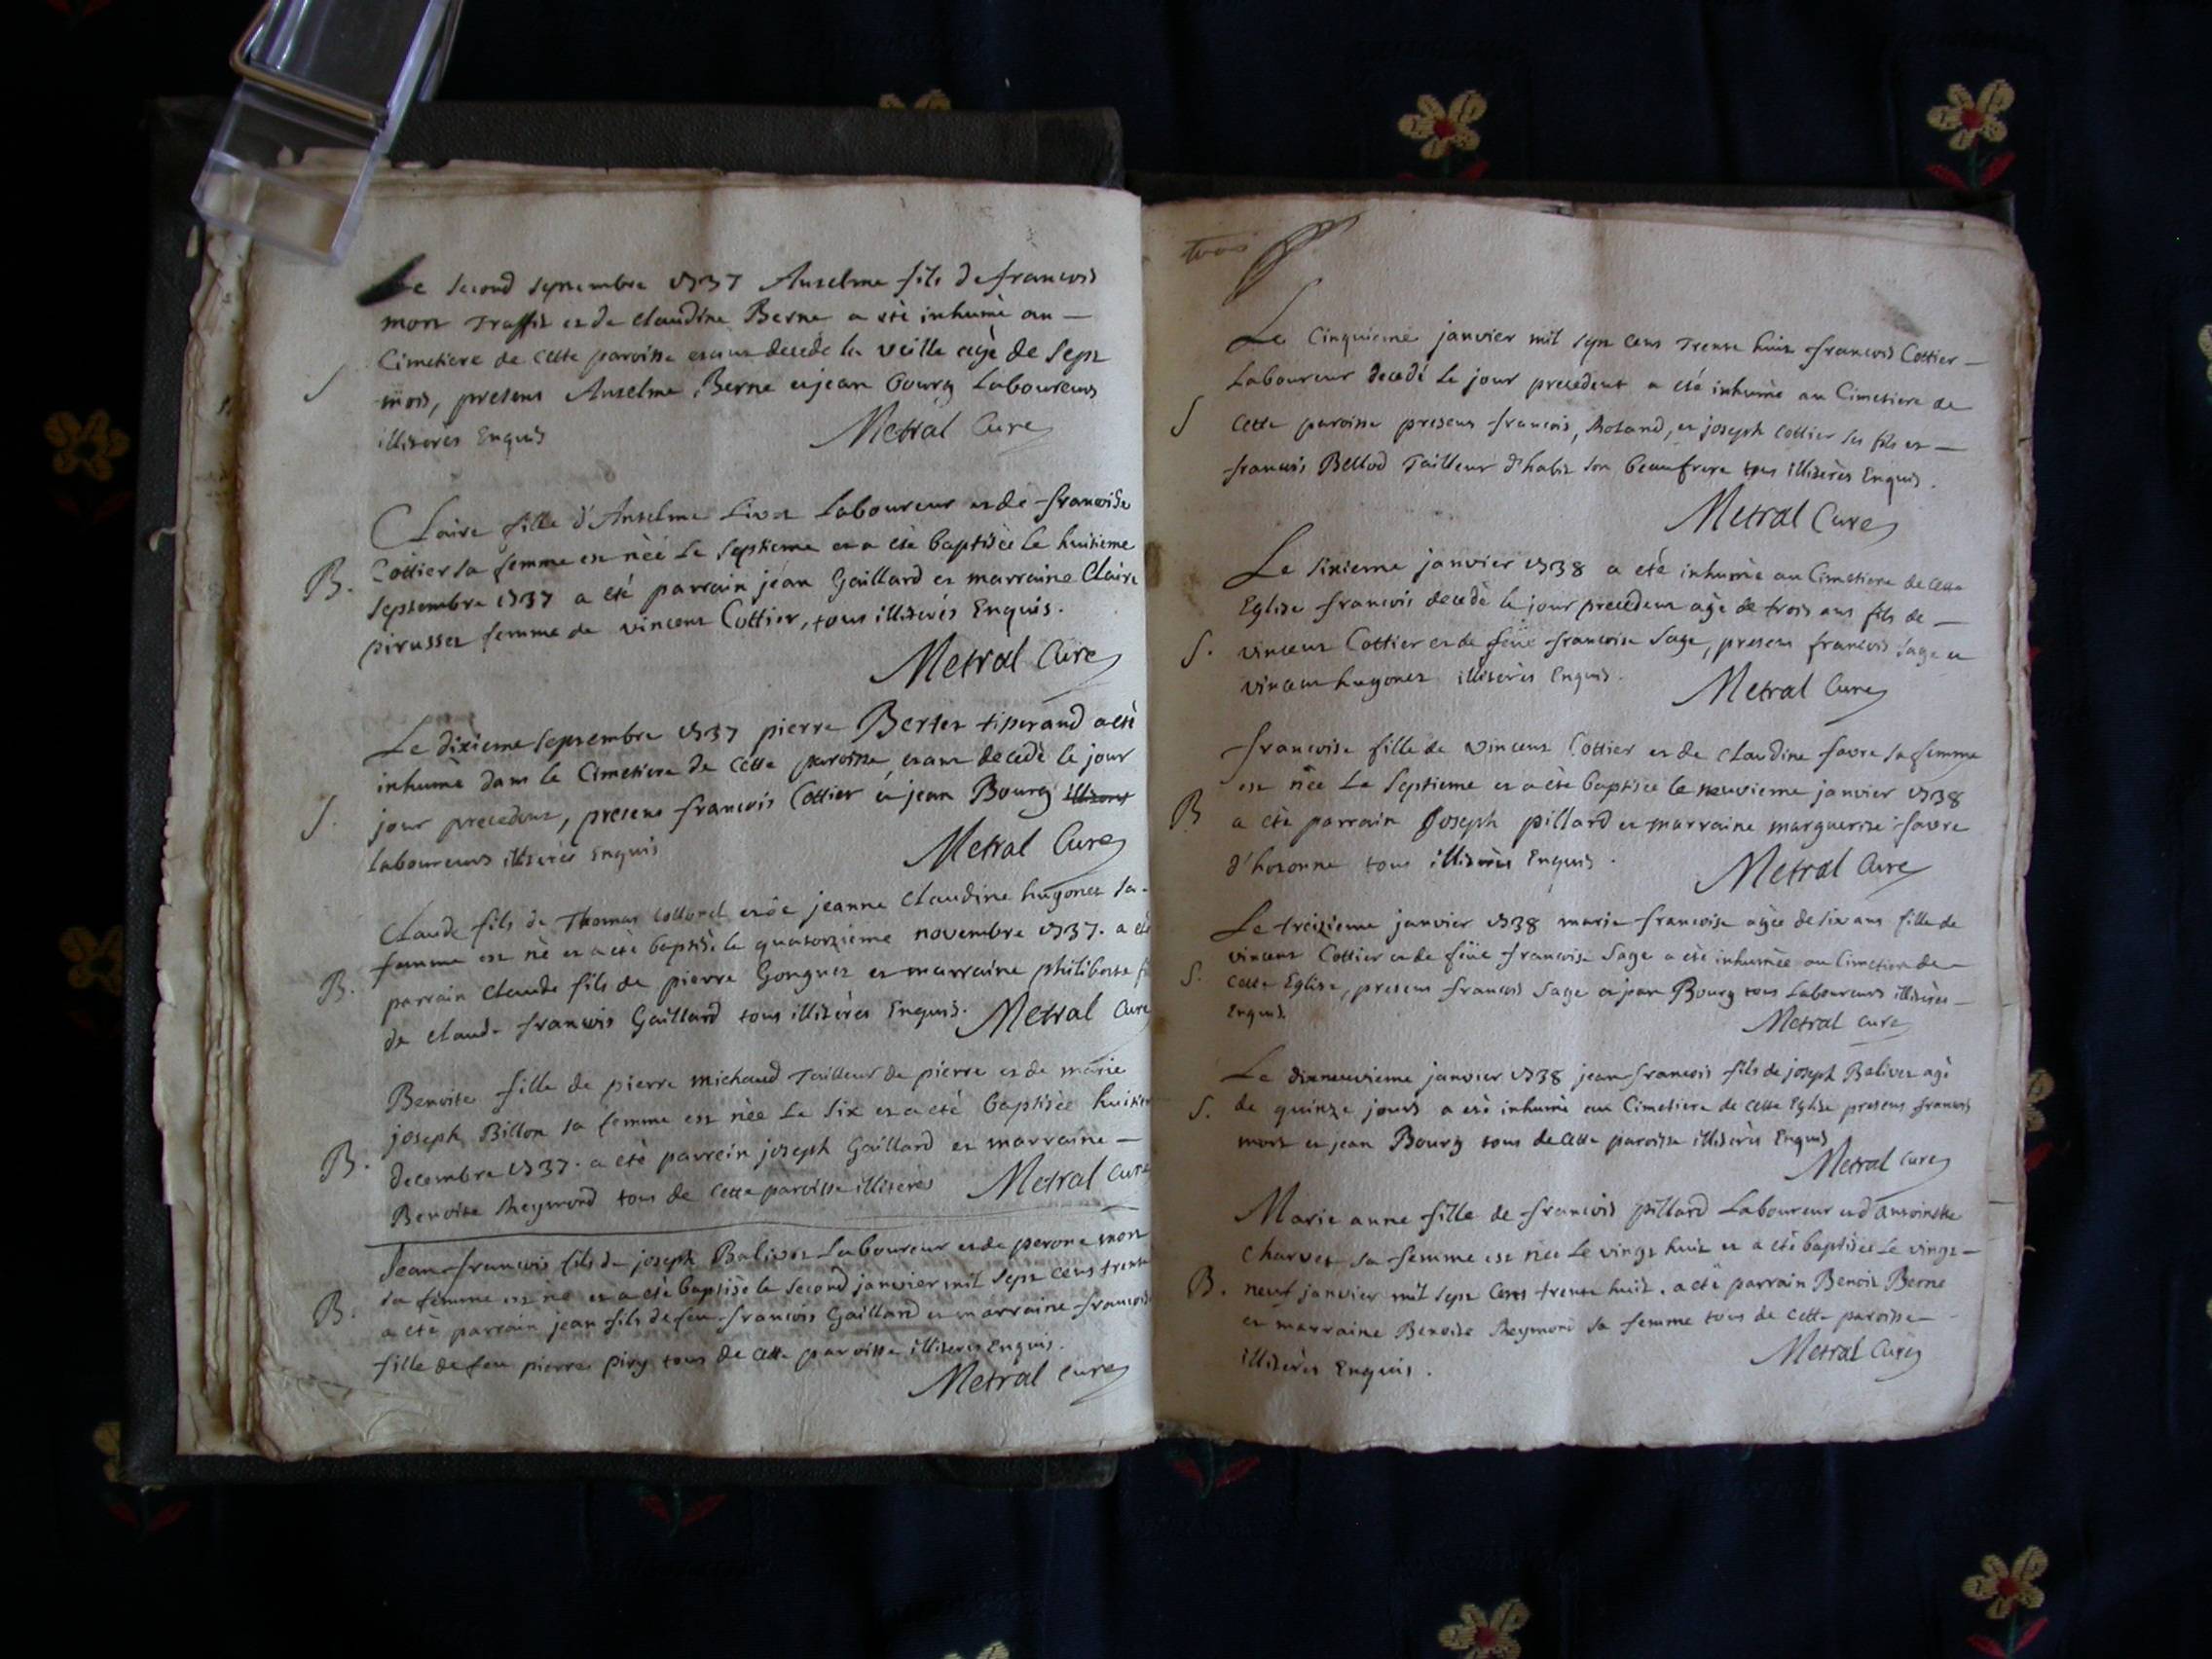 Le second septembre 1737 Anselme fils de francois
mort Traffit et de claudine Berne a eté inhumé au —
Cimetiere de cette paroisse etant decedé la veille agé de sept
S
mois, presens Anselme Berne et jean bourg Laboureurs
illiterés Enquis
Metral Curé
Claire fille d'Anselme Livet Laboureur et de francoise
Cottier sa femme est néé le septieme et a eté baptiséé le huitieme
B.
septembre 1737 a eté parrain jean Gaillard et marraine Claire
pirusset femme de vincent Cottier, tous illiterés Enquis.
Metral Curé
Le dixieme septembre 1737 pierre Bertet tisserand a eté
inhumé dans le Cimetiere de cette paroisse, etant decedé le jour
S.
jour precedent, presens francois Cottier et jean Bourg illiterés
laboureurs illiterés Enquis
Metral Curé
Claude fils de Thomas Collond et de jeanne Claudine hugonet sa
femme est né et a eté baptisé le quatorzieme novembre 1737. a eté
B.
parrain Claude fils de pierre Gonguet et marraine philiberte
de claude francois Gaillard tous illiterés Enquis.
Metral Curé
Benoite fille de pierre michaud Tailleur de pierre et de marie
joseph Billon sa femme est néé le six et a eté baptiséé huitiem
B.
decembre 1737. a eté parrein joseph Gaillard et marraine —
Benoite Reymond tous de cette paroisse illiterés
Metral Curé
Jean francois fils de joseph Balivet Laboureur et de perone mort
sa femme est né et a eté baptisé le second janvier mil sept cens trente
B.
a eté parrain jean fils de feu francois Gaillard et marraine francoise
fille de feu pierre piry tous de cette paroisse illiterés Enquis.
Metral curé
trois
Le Cinquieme janvier mil sept cens Trente huit francois Cottier —
Laboureur decedé le jour precedent a eté inhumé au Cimetiere de
S
cette paroisse presens francois, Roland, et joseph Cottier ses fils et —
francois Bellod Tailleur d'habit son beaufrere tous illiterés Enquis.
Metral Curé
Le sixieme janvier 1738 a eté inhumé au Cimetiere de cette
Eglise francois decedé le jour precedent agé de trois ans fils de —
S.
vincent Cottier et de feüe francoise Sage, presens francois Sage et
vincent hugonet illiterés Enquis.
Metral Curé
francoise fille de vincent Cottier et de claudine favre sa femme
est néé le septieme et a eté baptiséé le neuvieme janvier 1738
B
a eté parrain Joseph pillard et marraine marguerite favre
d'hotonne tous illiterés Enquis.
Metral Curé
Le treizieme janvier 1738 marie francoise agéé de six ans fille de
vincent Cottier et de feüe francoise Sage a eté inhuméé au Cimetiere de —
S.
cette Eglise, presens francois Sage et jean Bourg tous Laboureurs illiterés —
Enquis.
Metral curé
Le dixneuvieme janvier 1738 jean francois fils de joseph Balivet agé
S.
de quinze jours a eté inhumé au Cimetiere de cette Eglise presens francois
mort et jean Bourg tous de cette paroisse illiterés Enquis
Metral curé
Marie anne fille de francois pillard Laboureur et d'antoinette
Charvet sa femme est néé le vingt huit et a eté baptiséé le vingt —
B.
neuf janvier mil sept cens trente huit. a eté parrain Benoit Berne
et marraine Benoite Reymond sa femme tous de cette paroisse —
illiterés Enquis.
Metral Curé